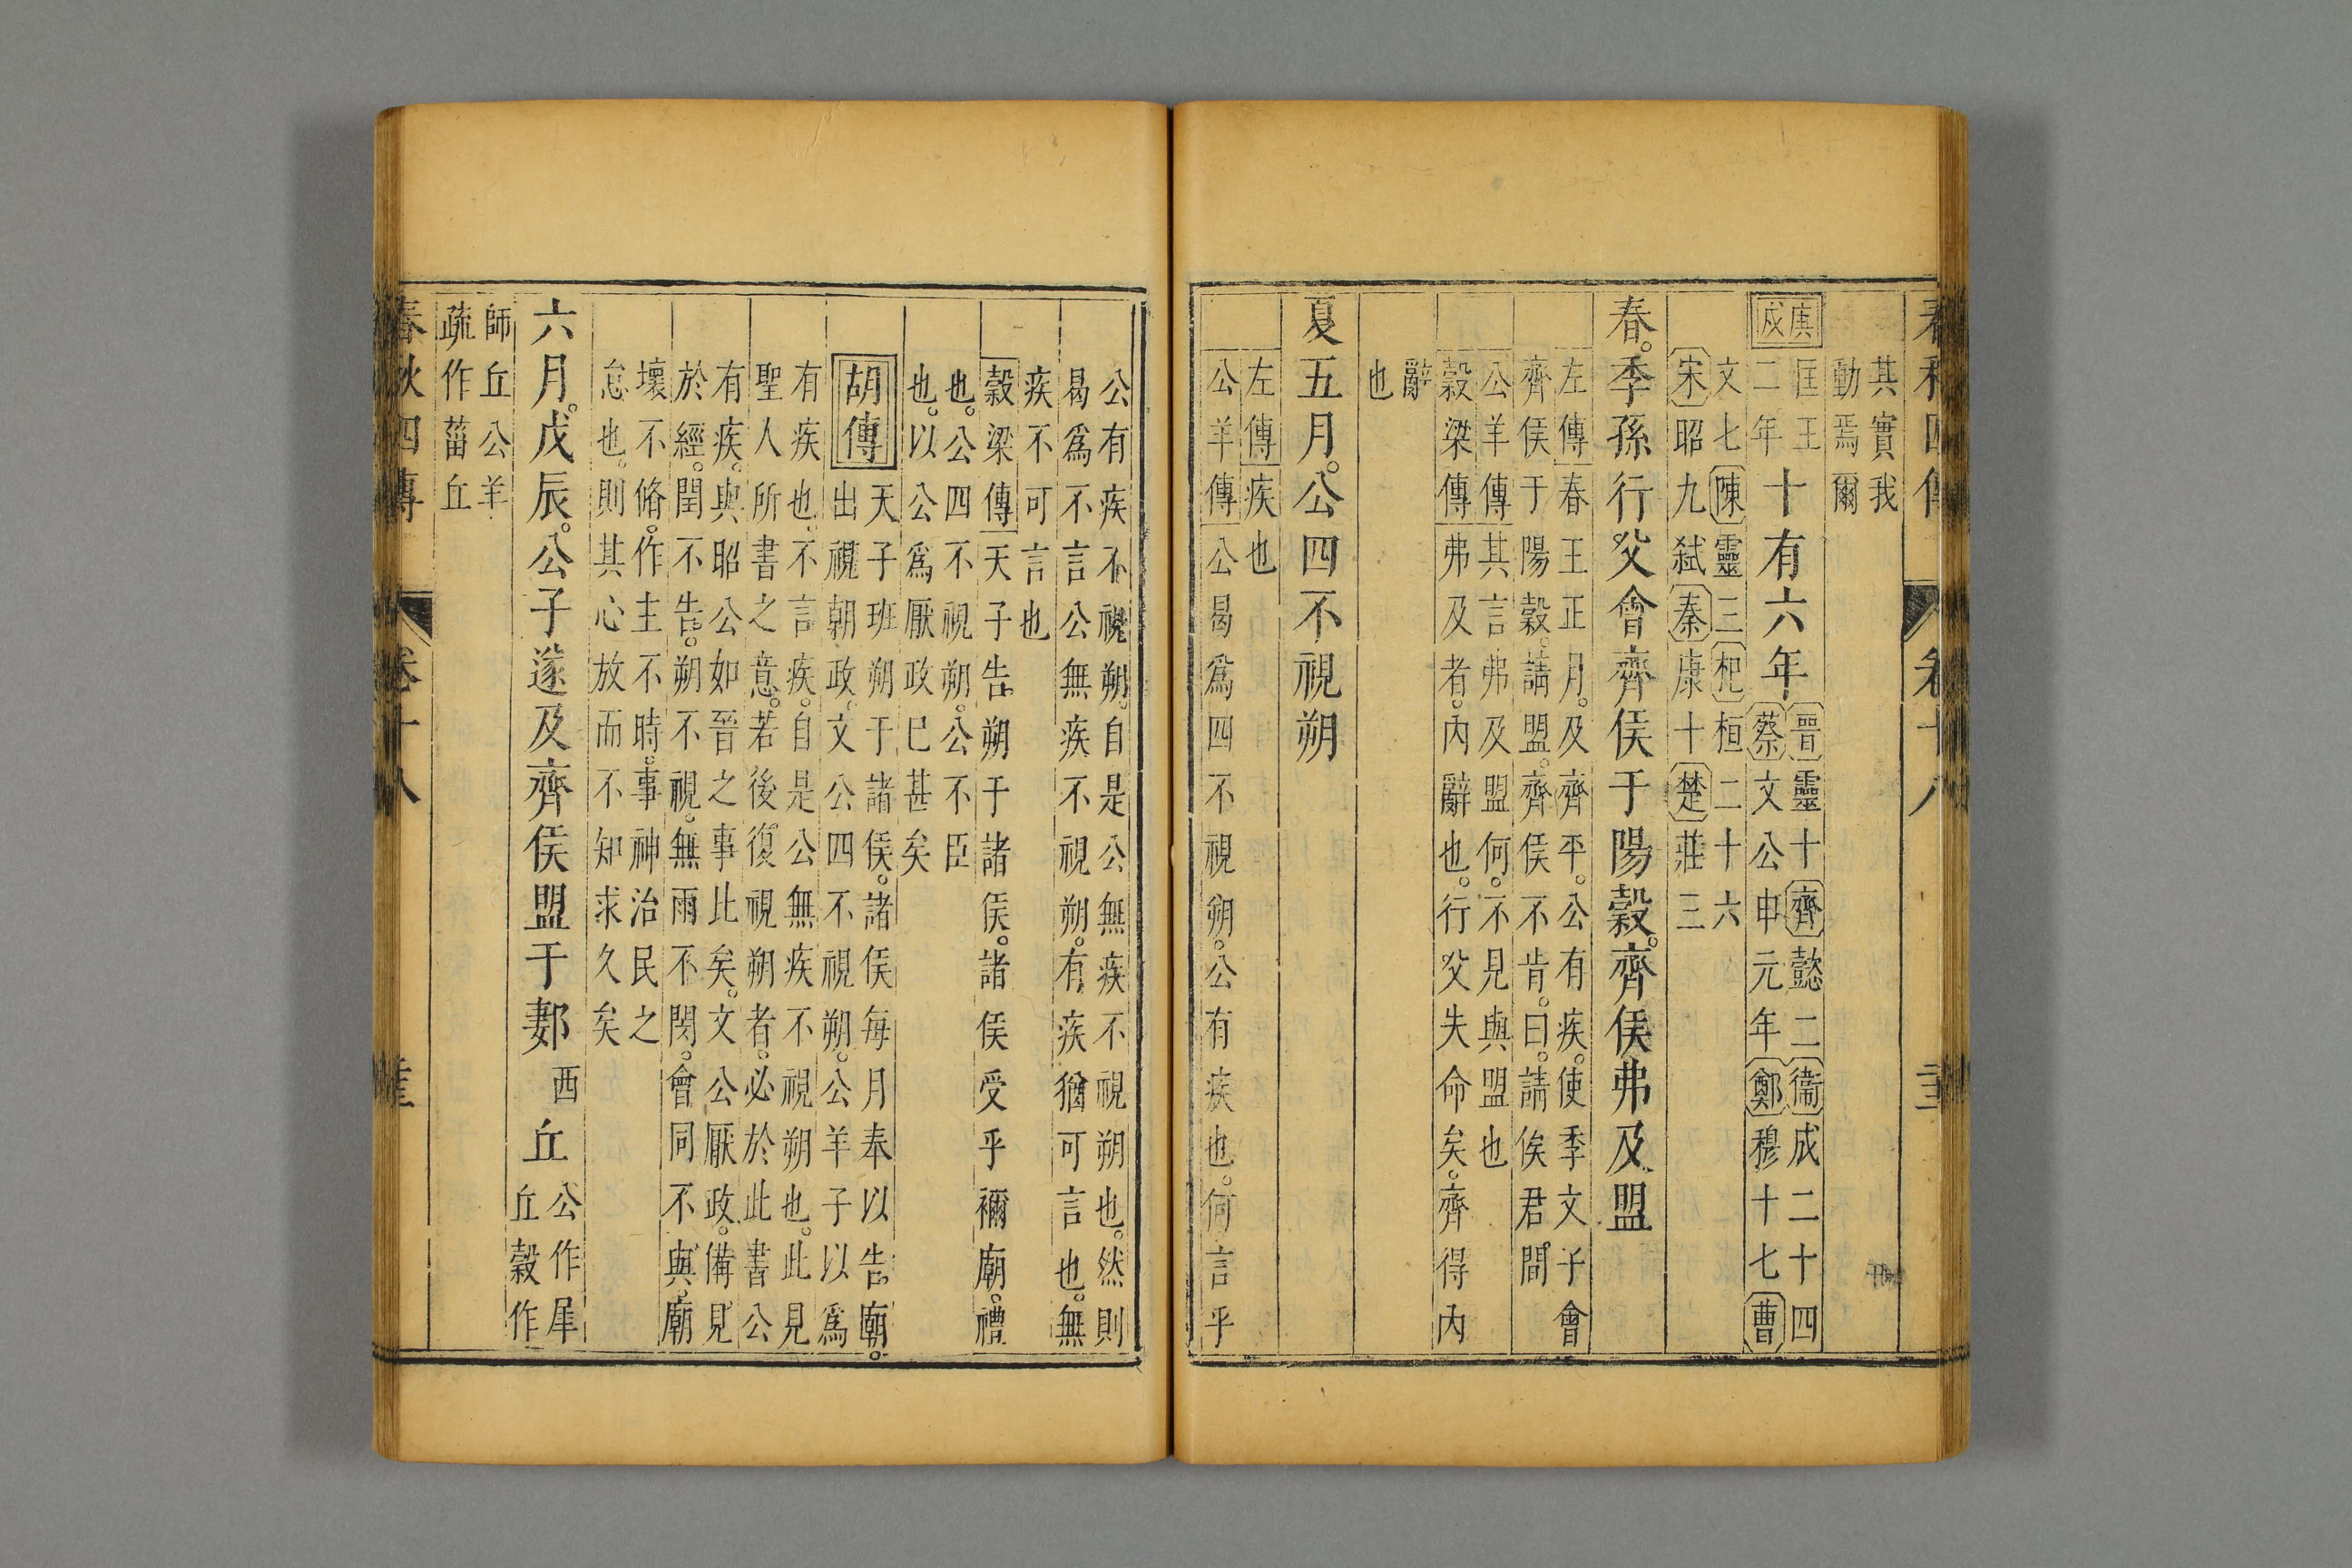 其實我
動焉爾
庚戌
匡王
二年
十有六年
晉靈十齊懿二衞成二十四
蔡文公申元年鄭穆十七曹
文七陳靈三杞桓二十六
宋昭九弑秦康十楚莊三
春。季孫行父會齊侯于陽穀。齊侯弗及盟
左傳春王正月。及齊平。公有疾。使季文子會
齊侯于陽穀。請盟。齊侯不肯。曰。請俟君間
公羊傳其言弗及盟何。不見與盟也
穀梁傳弗及者。內辭也。行父失命矣。齊得內
辭
也
夏五月。公四不視朔
左傳疾也
公羊傳公曷爲四不視朔。公有疾也。何言乎
公有疾不視朔。自是公無疾不視朔也。然則
曷爲不言公無疾不視朔。有疾猶可言也。無
疾不可言也
穀梁傳天子告朔于諸侯。諸侯受乎禰廟。禮
也。公四不視朔。公不臣
也。以公爲厭政已甚矣
胡傳
天子班朔于諸侯。諸侯每月奉以告廟。
出視朝政。文公四不視朔。公羊子以爲
有疾也。不言疾。自是公無疾不視朔也。此見
聖人所書之意。若後復視朔者。必於此書公
有疾。與昭公如晉之事比矣。文公厭政。備見
於經。閏不告。朔不視。無雨不閔。會同不與。廟
壞不脩。作主不時。事神治民之
怠也。則其心放而不知求久矣
六月。戊辰。公子遂及齊侯盟于郪
西
丘
公作犀
丘穀作
師丘公羊
疏作菑丘
春秋四傳
卷十八